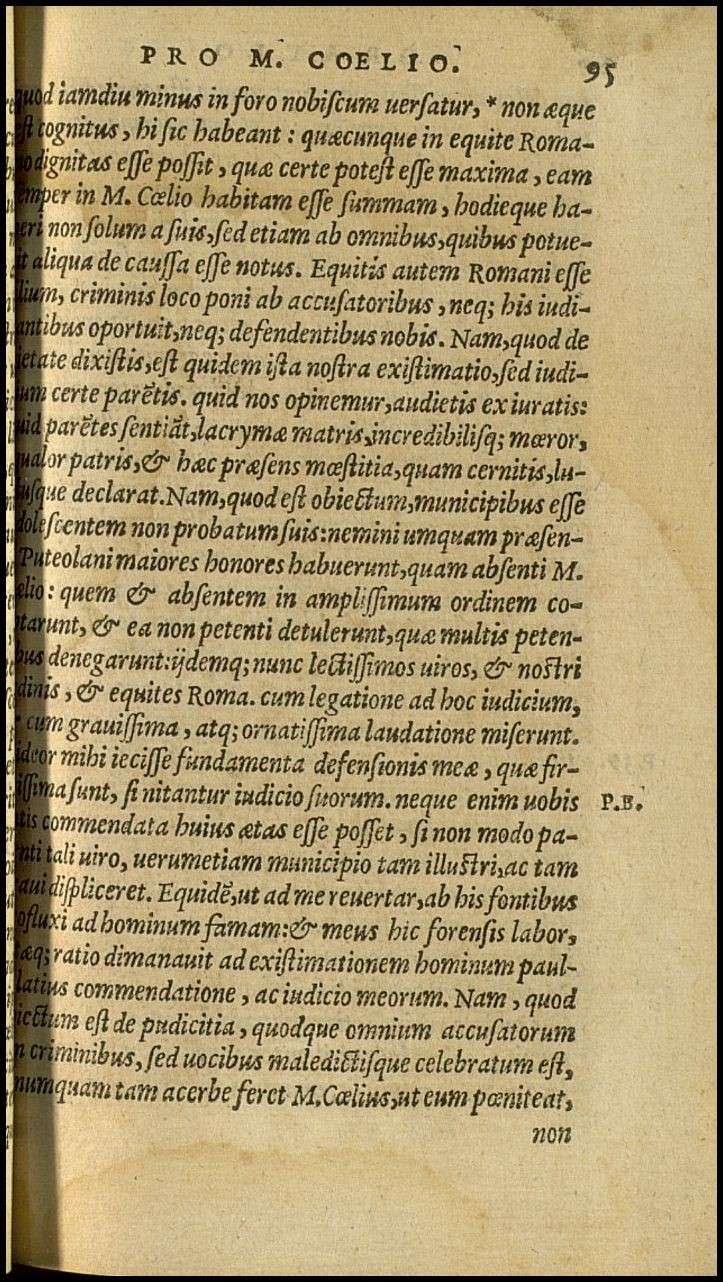 PRO M. COELIO. 95
quod iamdiu minus in foro nobiscum uersatur, * non æque
est cognitus, hi sic habeant: quæcunque in equite Roma-
no dignitas esse possit, quæ certe potest esse maxima, eam
emper in M. Cœlio habitam esse summam, hodieque ha-
eri non solum a suis, sed etiam ab omnibus, quibus potue-
it aliqua de caussa esse notus. Equitis autem Romani esse
lium, criminis loco poni ab accusatoribus, neq; his iudi-
antibus oportuit, neq; defendentibus nobis. Nam, quod de
ietate dixistis, est quidem ista nostra existimatio, sed iudi-
um certe parẽtis. quid nos opinemur, audietis ex iuratis:
uid parẽtes sentiãt, lacrymæ matris, incredibilisq; mœror,
qualor patris, & hæc præsens mœstitia, quam cernitis, lu-
usque declarat. Nam, quod est obiectum, municipibus esse
dolescentem non probatum suis: nemini umquam præsen-
Puteolani maiores honores habuerunt, quam absenti M.
ælio: quem & absentem in amplissimum ordinem co-
ptarunt, & ea non petenti detulerunt, quæ multis peten-
bus denegarunt: ijdemq; nunc lectissimos uiros, & nostri
dinis, & equites Roma. cum legatione ad hoc iudicium,
cum grauissima, atq; ornatissima laudatione miserunt.
ideor mihi iecisse fundamenta defensionis meæ, quæ fir-
issima sunt, si nitantur iudicio suorum. neque enim uobis P.E.
tis commendata huius ætas esse posset, si non modo pa-
nti tali uiro, uerumetiam municipio tam illustri, ac tam
aui displiceret. Equidẽ, ut ad me reuertar, ab his fontibus
ofluxi ad hominum famam: & meus hic forensis labor,
tæq; ratio dimanauit ad existimationem hominum paull-
latius commendatione, ac iudicio meorum. Nam, quod
iectum est de pudicitia, quodque omnium accusatorum
n criminibus, sed uocibus maledictisque celebratum est,
numquam tam acerbe feret M. Cœlius, ut eum pœniteat,
non